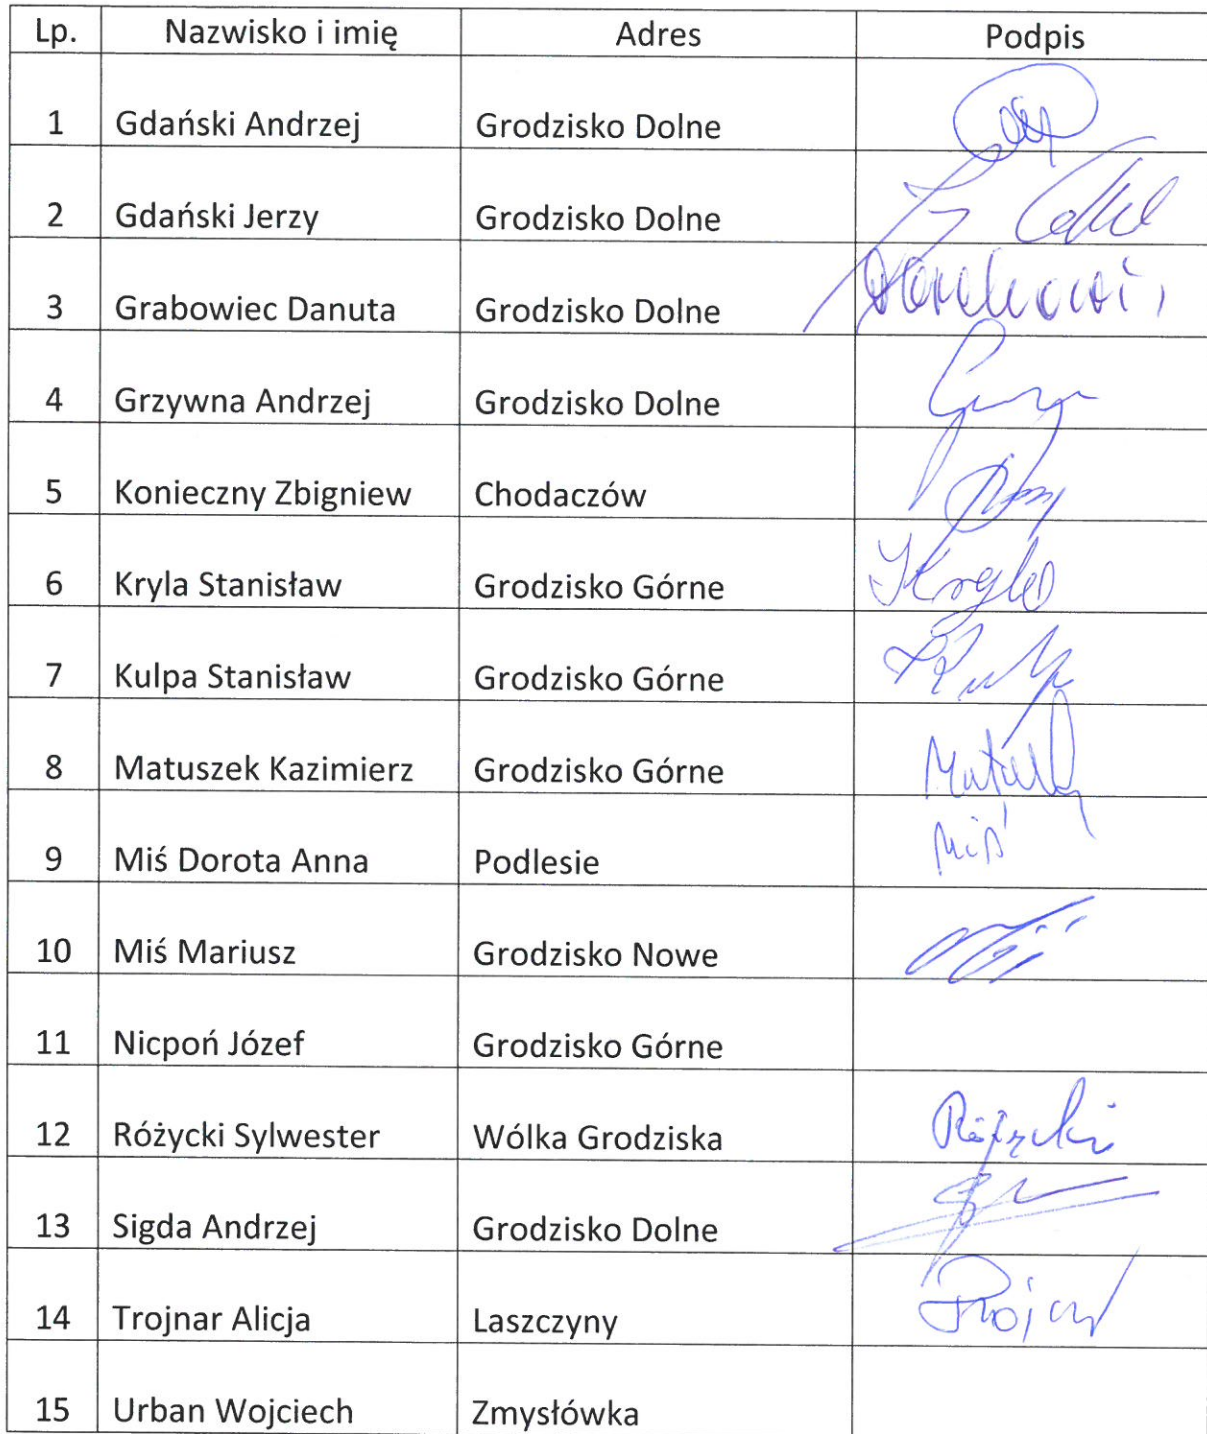 Lp. Nazwisko i imię Adres Podpis
1 Gdański Andrzej Grodzisko Dolne
2 Gdański Jerzy Grodzisko Dolne
3 Grabowiec Danuta Grodzisko Dolne
4 Grzywna Andrzej Grodzisko Dolne
5 Konieczny Zbigniew Chodaczów
6 Kryla Stanisław Grodzisko Górne
7 Kulpa Stanisław Grodzisko Górne
8 Matuszek Kazimierz Grodzisko Górne
9 Miś Dorota Anna Podlesie Miś
10 Miś Mariusz Grodzisko Nowe
11 Nicpoń Józef Grodzisko Górne
12 Różycki Sylwester Wólka Grodziska Różycki
13 Sigda Andrzej Grodzisko Dolne
14 Trojnar Alicja Laszczyny
15 Urban Wojciech Zmysłówka